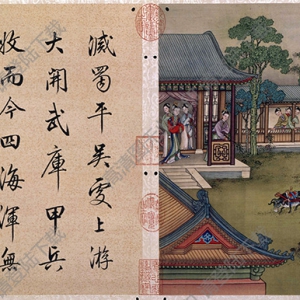 滅蜀平吳上游
大開武庫甲兵
收而今四海渾無